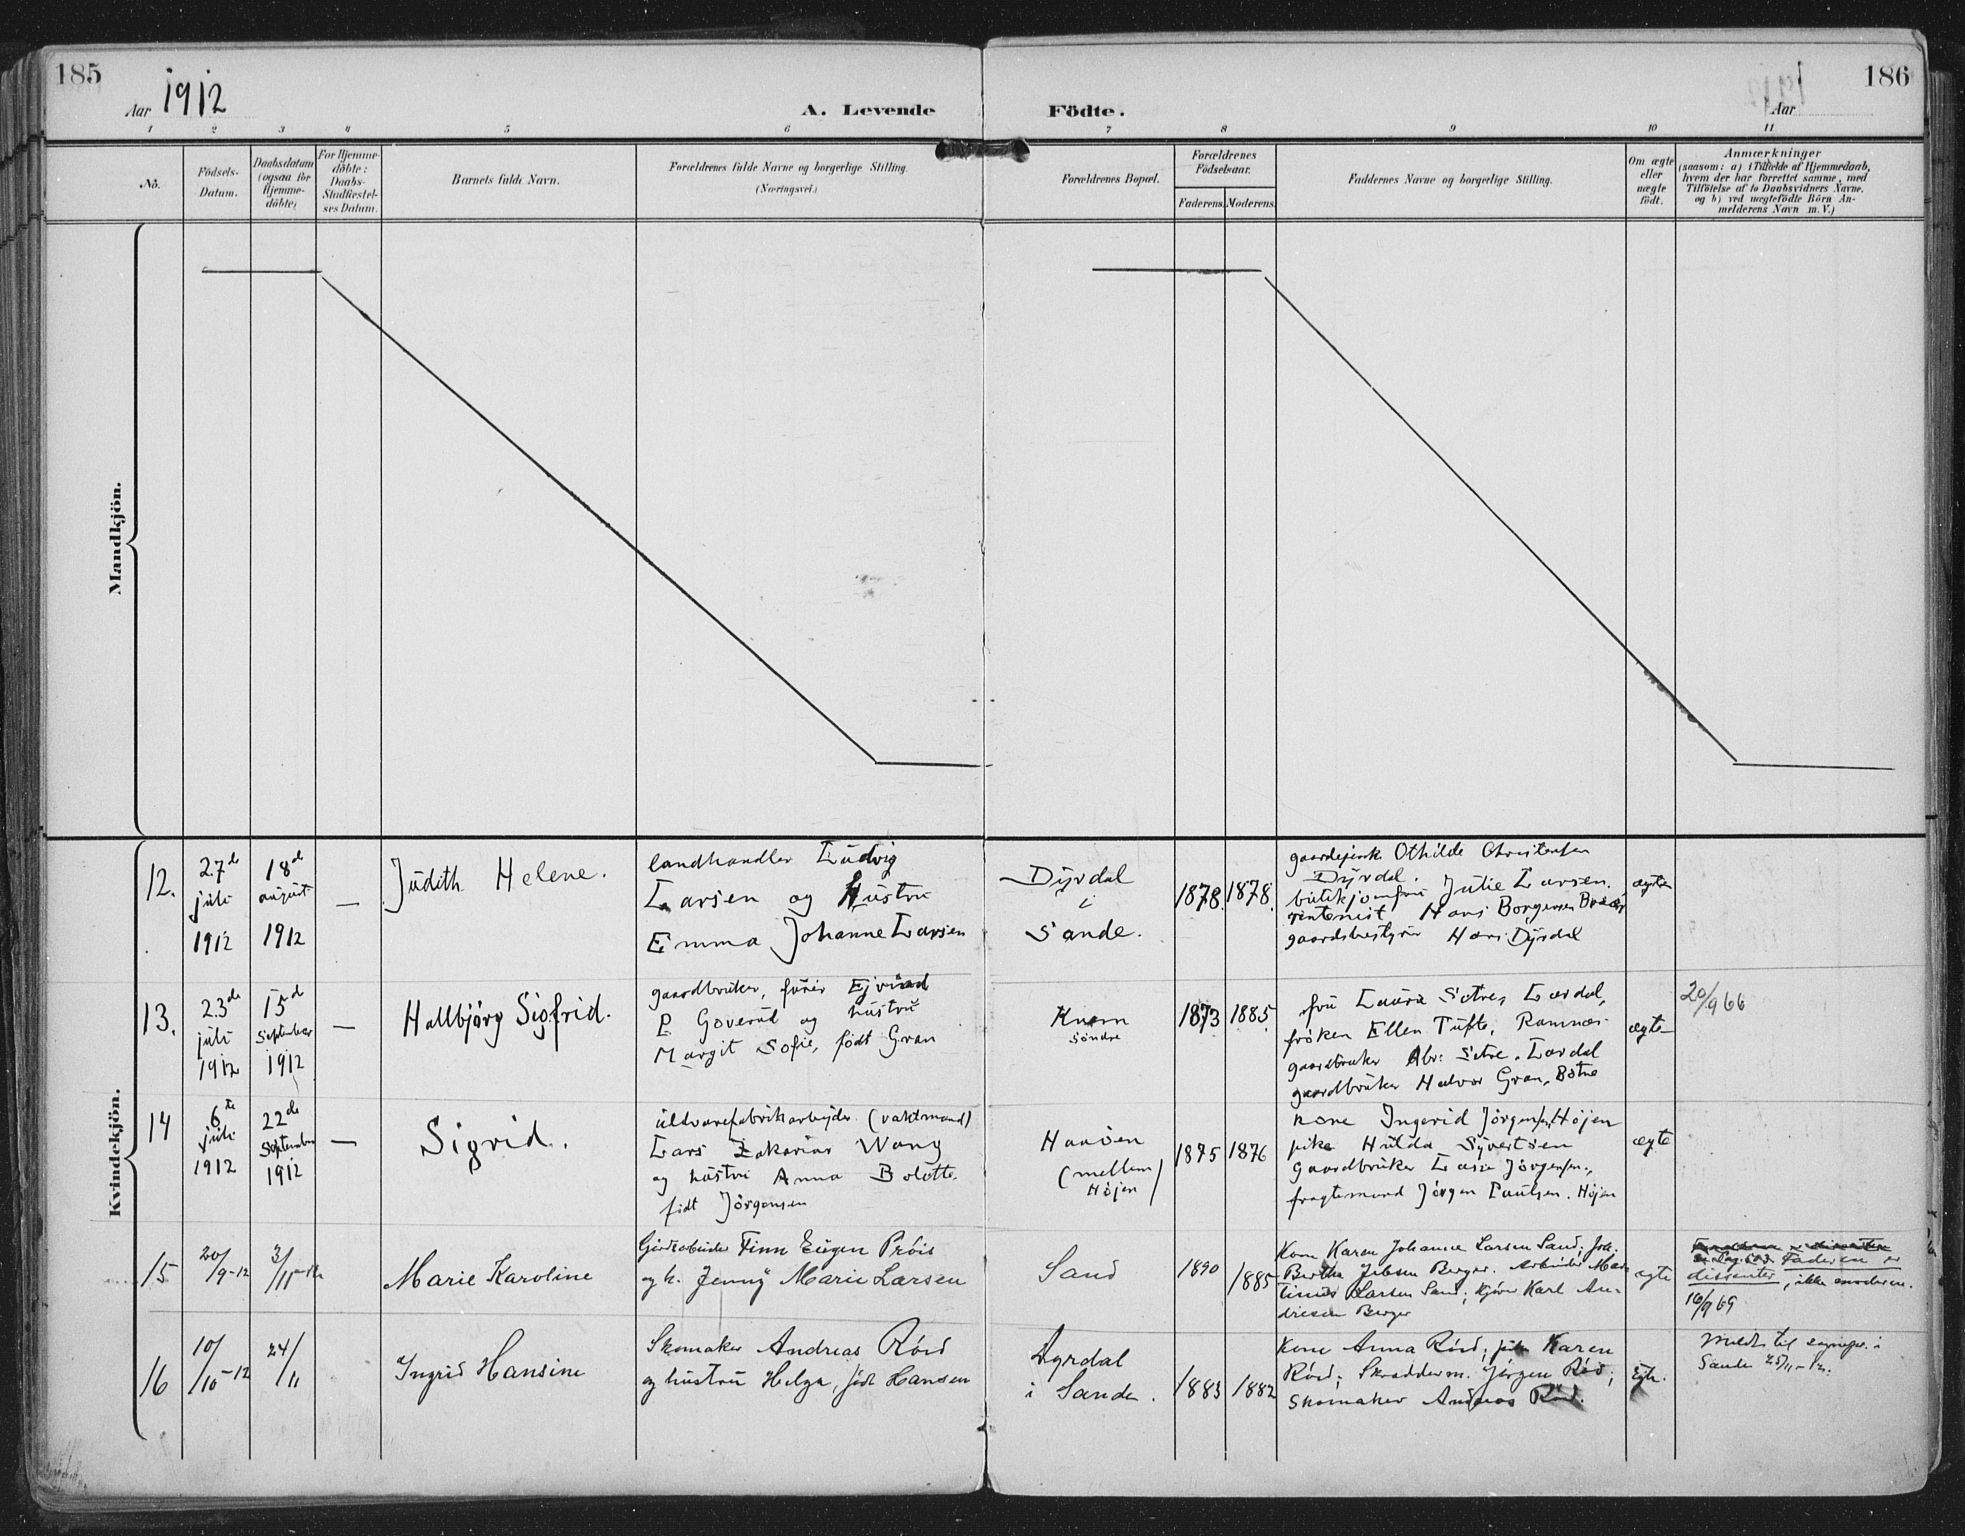 185
Aar 1912
A. Levende
Födte.
Aar
186
1 2 3 4 5 6 7 8 9 10 11
No.
Födsels-
Datum.
Daabsdatum
(ogsaa for
Hjemme-
döbte)
For Hjemme-
döbte:
Daabs-
Stadfæstel-
ses Datum.
Barnets fulde Navn.
Forældrenes fulde Navne og borgerlige Stilling.
(Næringsvei.)
Forældrenes Bopæl.
Forældrenes
Födselsaar.
Faderens. Moderens.
Faddernes Navne og borgerlige Stilling.
Om ægte
eller
uægte
födt.
Anmærkninger
(saasom: a) i Tilfælde af Hjemmedaab,
hvem der har forrettet samme, med
Tilföielse af to Daabsvidners Navne.
og b) ved uægtefödte Börn An-
melderens Navn m. V.)
Mandkjön.
Kvindekjön.
12.
27de
juli
1912
18d
august
1912
—
Judith Helene.
landhandler Ludvig
Larsen og Hustru
Emma Johanne Larsen
Dyrdal
i
Sande.
1878. 1878.
Othilde Christensen
Dyrdal.
butikjomfru Julie Larsen.
rentenist Hans Borgersen
gaardsbestyrer Hans Dyrdal
ægte
13.
23de
juli
1912
15d
September
1912
—
Hallbjørg Sigfrid.
gaardbruker, furér Ejvind
P. Goverud og hustru
Margit Sofie, født Gran
Knem
søndre
1873 1885.
fru Laura Sætre, Lardal,
frøken Ellen Tufte, Ramnes
gaardbruker Abr: Sætre. Lardal
gaardbruker Halvor Gran, Botne
ægte
20/9 66
14
6te
juli
1912
22de
September
1912
—
Sigrid.
uldvarefabrikarbejder (vaktmand)
Lars Zakarias Wang
og hustru Anna Bolette,
født Jørgensen
Haasen
(mellem
Højen)
1875 1876
kone Ingerid Jørgensen, Højen
pike Hulda Syvertsen
Gaardbruker Lars Jørgensen.,
fragtemand Jørgen Paulsen. Højen
ægte
15
20/9-12
3/11-12
Marie Karoline
Finn Eugen Prøis
og h. Jenny Marie Larsen
Sand
1890 1885
Kone Karen Johanne Larsen Sand;
Bertha Jebsen Berger. Arbeider Mar-
tinius Larsen Sand; Kjører Karl An-
dresen Berger
ægte
Faderen er
dissenter, ikke moderen.
16/9 69
16
10/10-12
24/11
Ingrid Hansine
Skomaker Andreas Röed
og hustru Helga, födt Hansen
Dyrdal
i Sande.
1883 1882
Kone Anna Röed; pike Karen
Röed; Skrædderm. Jörgen Röd;
Skomaker Andreas Röd.
Egte.
Meldt til sognepr. i
Sande 25/11-12.